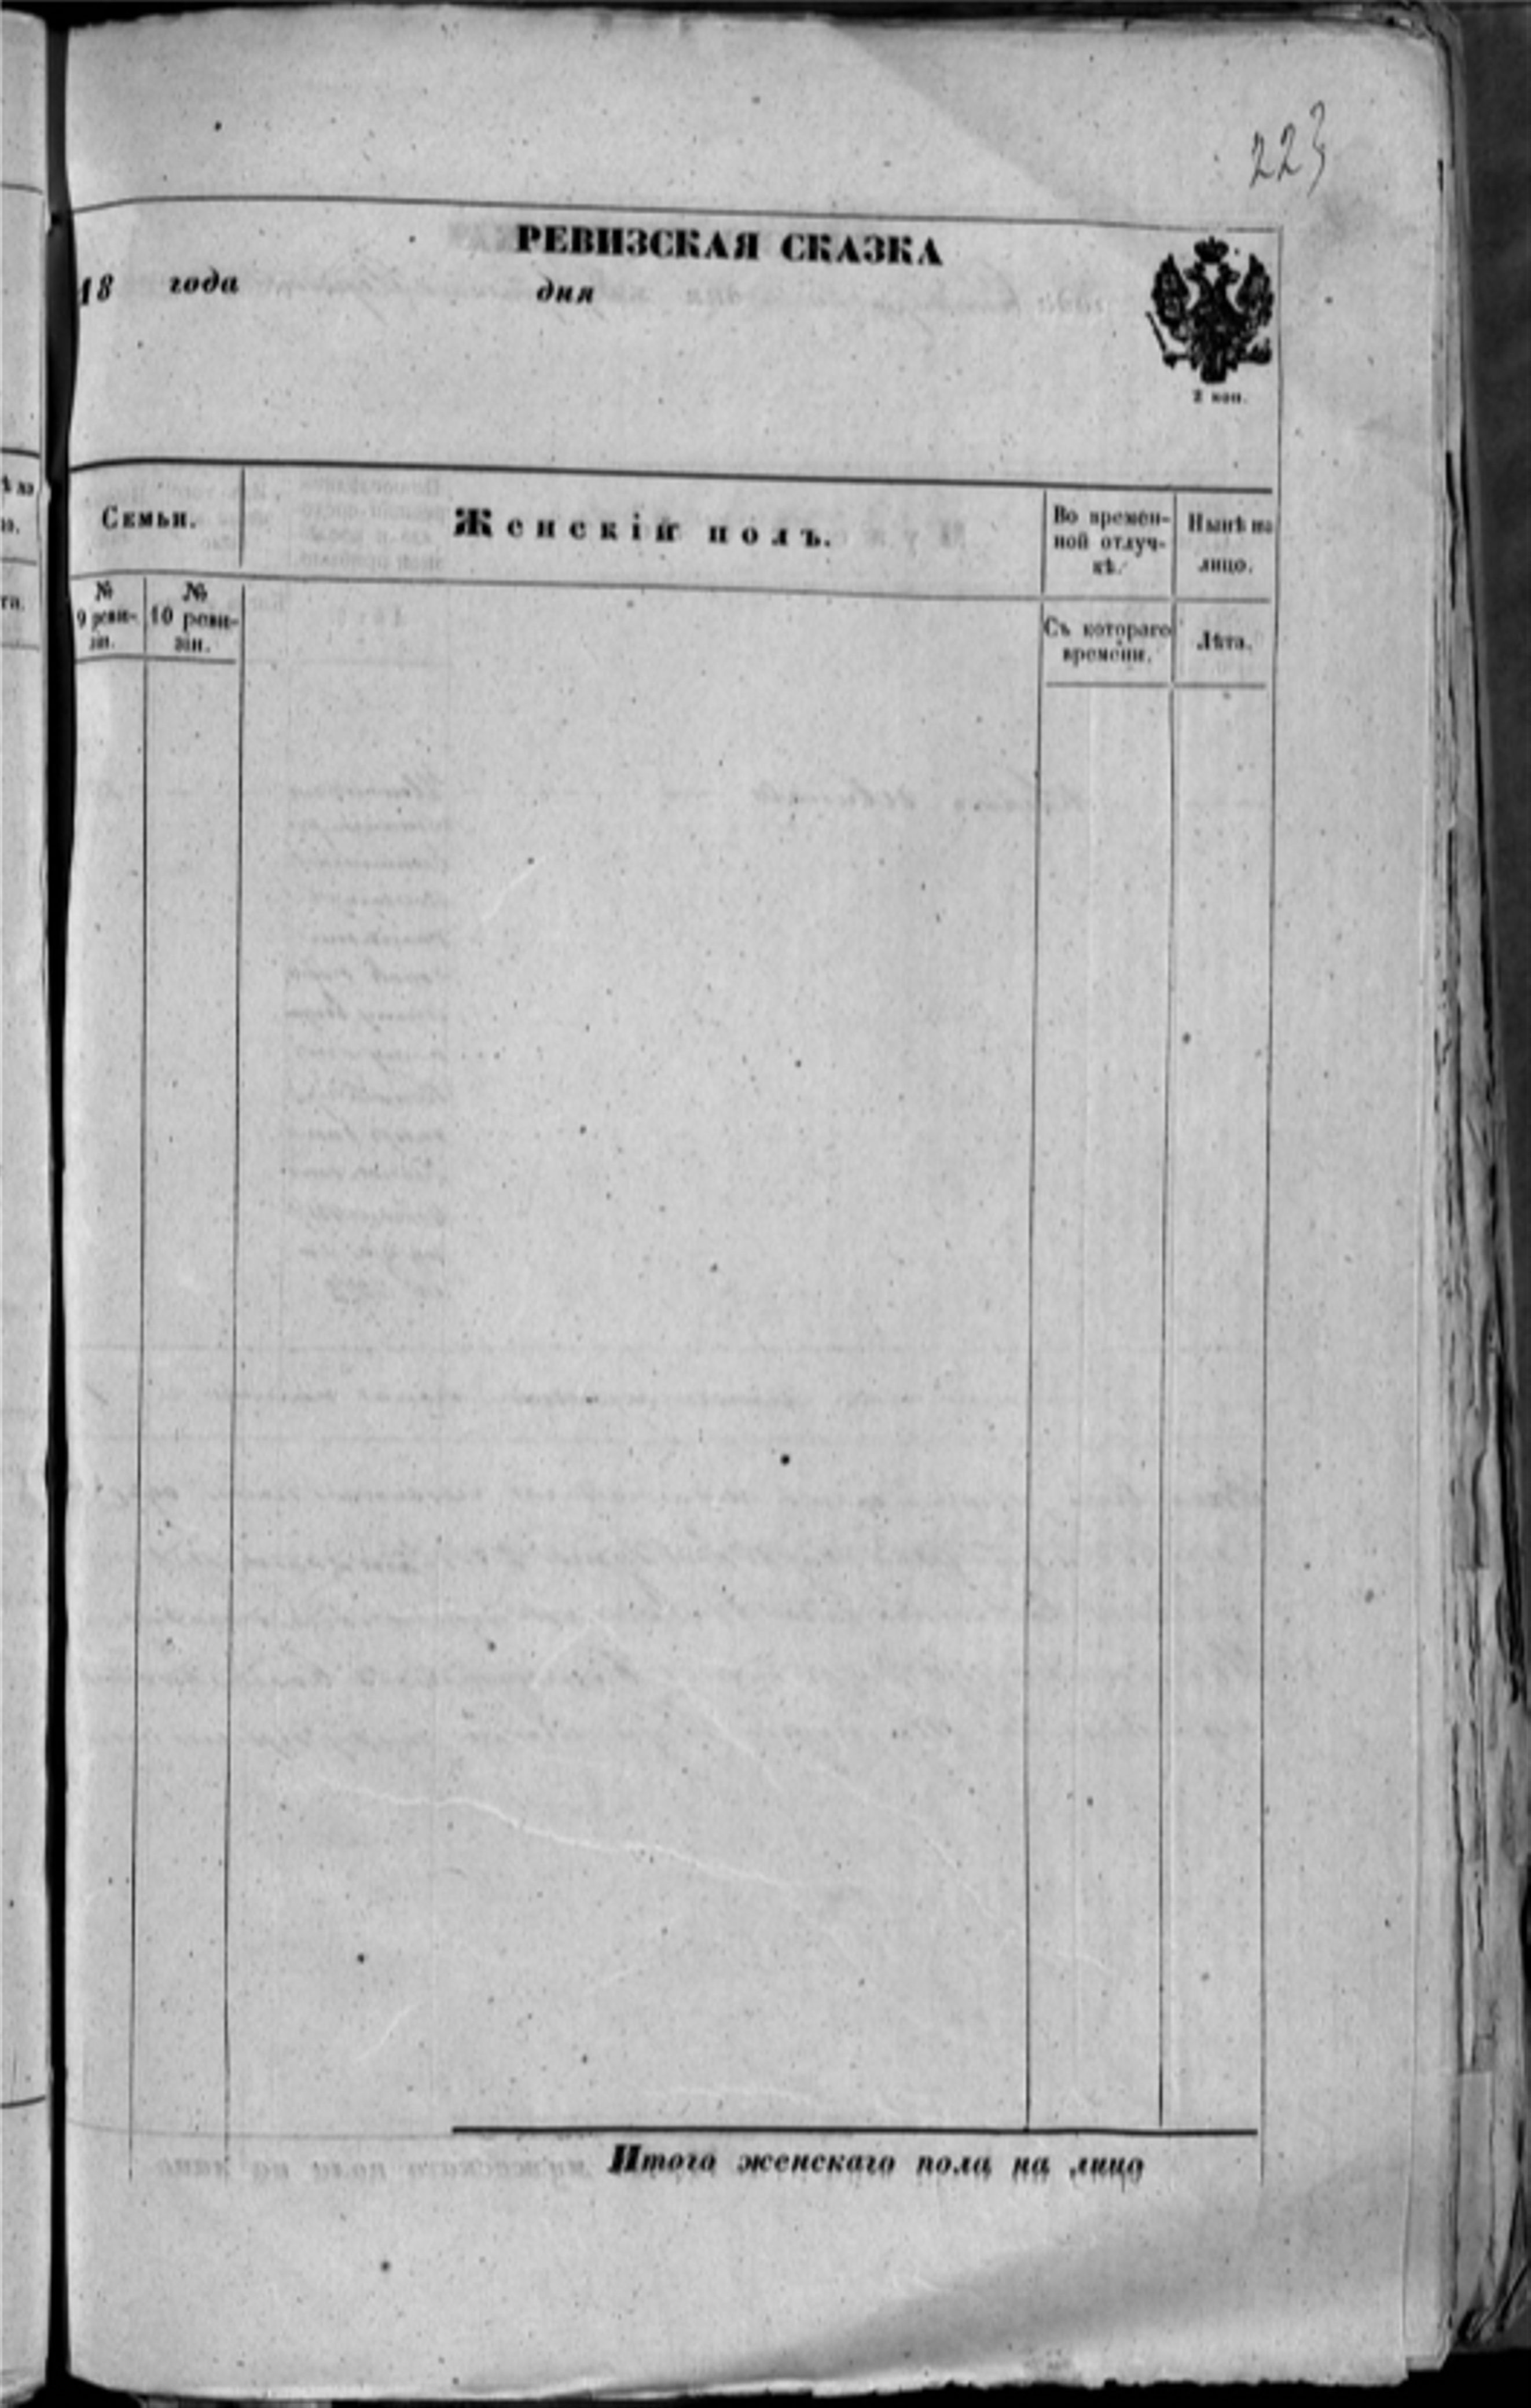 223
РЕВИЗСКАЯ СКАЗКА
18 года дня
2 коп.
Семьи.
Женскій полъ.
Во времен-
ной отлуч-
кѣ.
Нынѣ на
лицо.
№
9 реви-
зіи.
№
10 реви-
зіи.
Съ котораго
времени.
Лѣта.
Итого женскаго пола на лицо